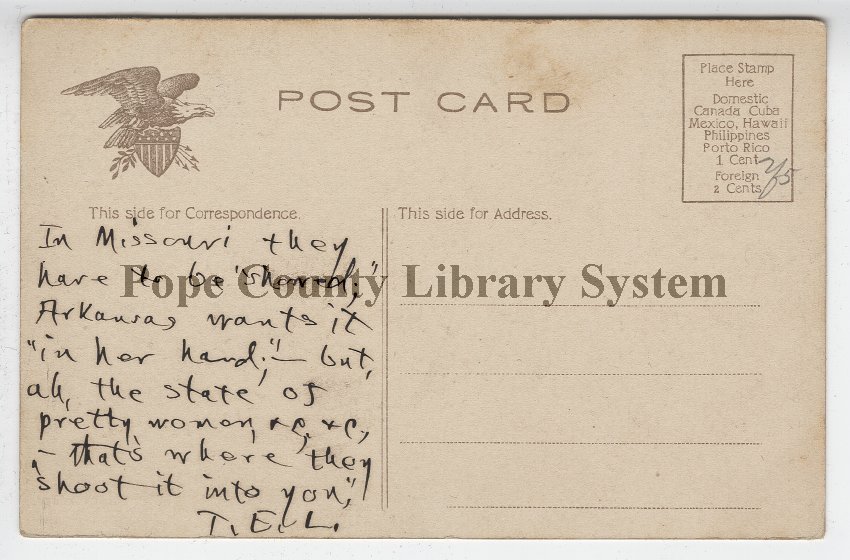 POST CARD
Place Stamp
Here
Domestic
Canada Cuba
Mexico, Hawaii
Philippines
Porto Rico
1 Cent
Foreign
2 Cents
This side for Correspondence.
This side for Address.
In Missouri they
have to be "showed;"
Arkansas wants it
"in her hand;" – but,
ah, the state of
pretty women, &c, &c,
– that's where they
"shoot it into you,"
T. E. L.
Pope County Library System